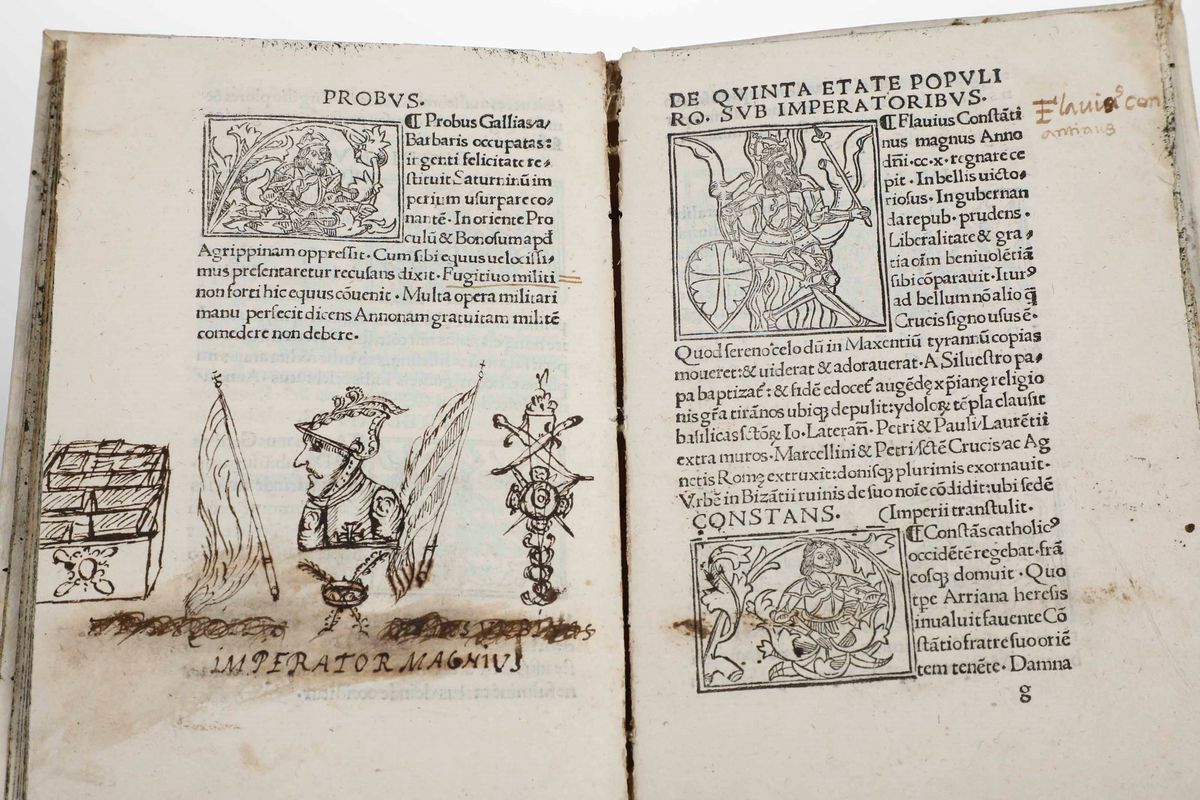 PROBVS.
¶ Probus Gallias a
barbaris occupatas:
irgenti felicitate re-
stituit Saturninū im
perium usurpare co-
nantē. In oriente Pro
culū & Bonosum apđ
Agrippinam oppressit. Cum sibi equus uelocissi-
mus presentaretur recusans dixit. Fugitiuo militi
non forti hic equus cōuenit. Multa opera militari
manu perfecit dicens Annonam gratuitam militē
comedere non debere.
IMPERATOR MAGNIVS
DE QVINTA ETATE POPVLI
RO. SVB IMPERATORIBVS.
Flauius con
antinus
¶ Flauius Constāti
nus magnus Anno
dñi. cc. x. regnare ce
pit. In bellis uicto-
riosus. In gubernan
da repub. prudens.
Liberalitate & gra-
tia oīm beniuolētiā
sibi cōparauit. Iturꝰ
ad bellum nō alio q̄
Crucis signo usus ē.
Quod sereno celo dū in Maxentiū tyrannū copias
moueret: & uiderat & adorauerat. A Siluestro pa-
pa baptizat᷑: & fidē edocet᷑ augēdę xp̄ianę religio
nis gr̄a tirānos ubiqꝫ depulit: ydoloꝝ tēpla clausit
basilicas sctōꝝ Io. Laterañ. Petri & Pauli/Laurētii
extra muros. Marcellini & Petri/sctē Crucis/ac Ag
netis Romę extruxit: donisqꝫ plurimis exornauit.
Vrbē in Bizātii ruinis de suo noīe cōdidit: ubi sedē
CONSTANS. (Imperii transtulit.
¶ Constās catholicꝰ
occidētē regebat. frā
cosqꝫ domuit. Quo
tp̄e Arriana heresis
inualuit fauente Cō
stātio fratre suo oriē
tem tenēte. Damna
g